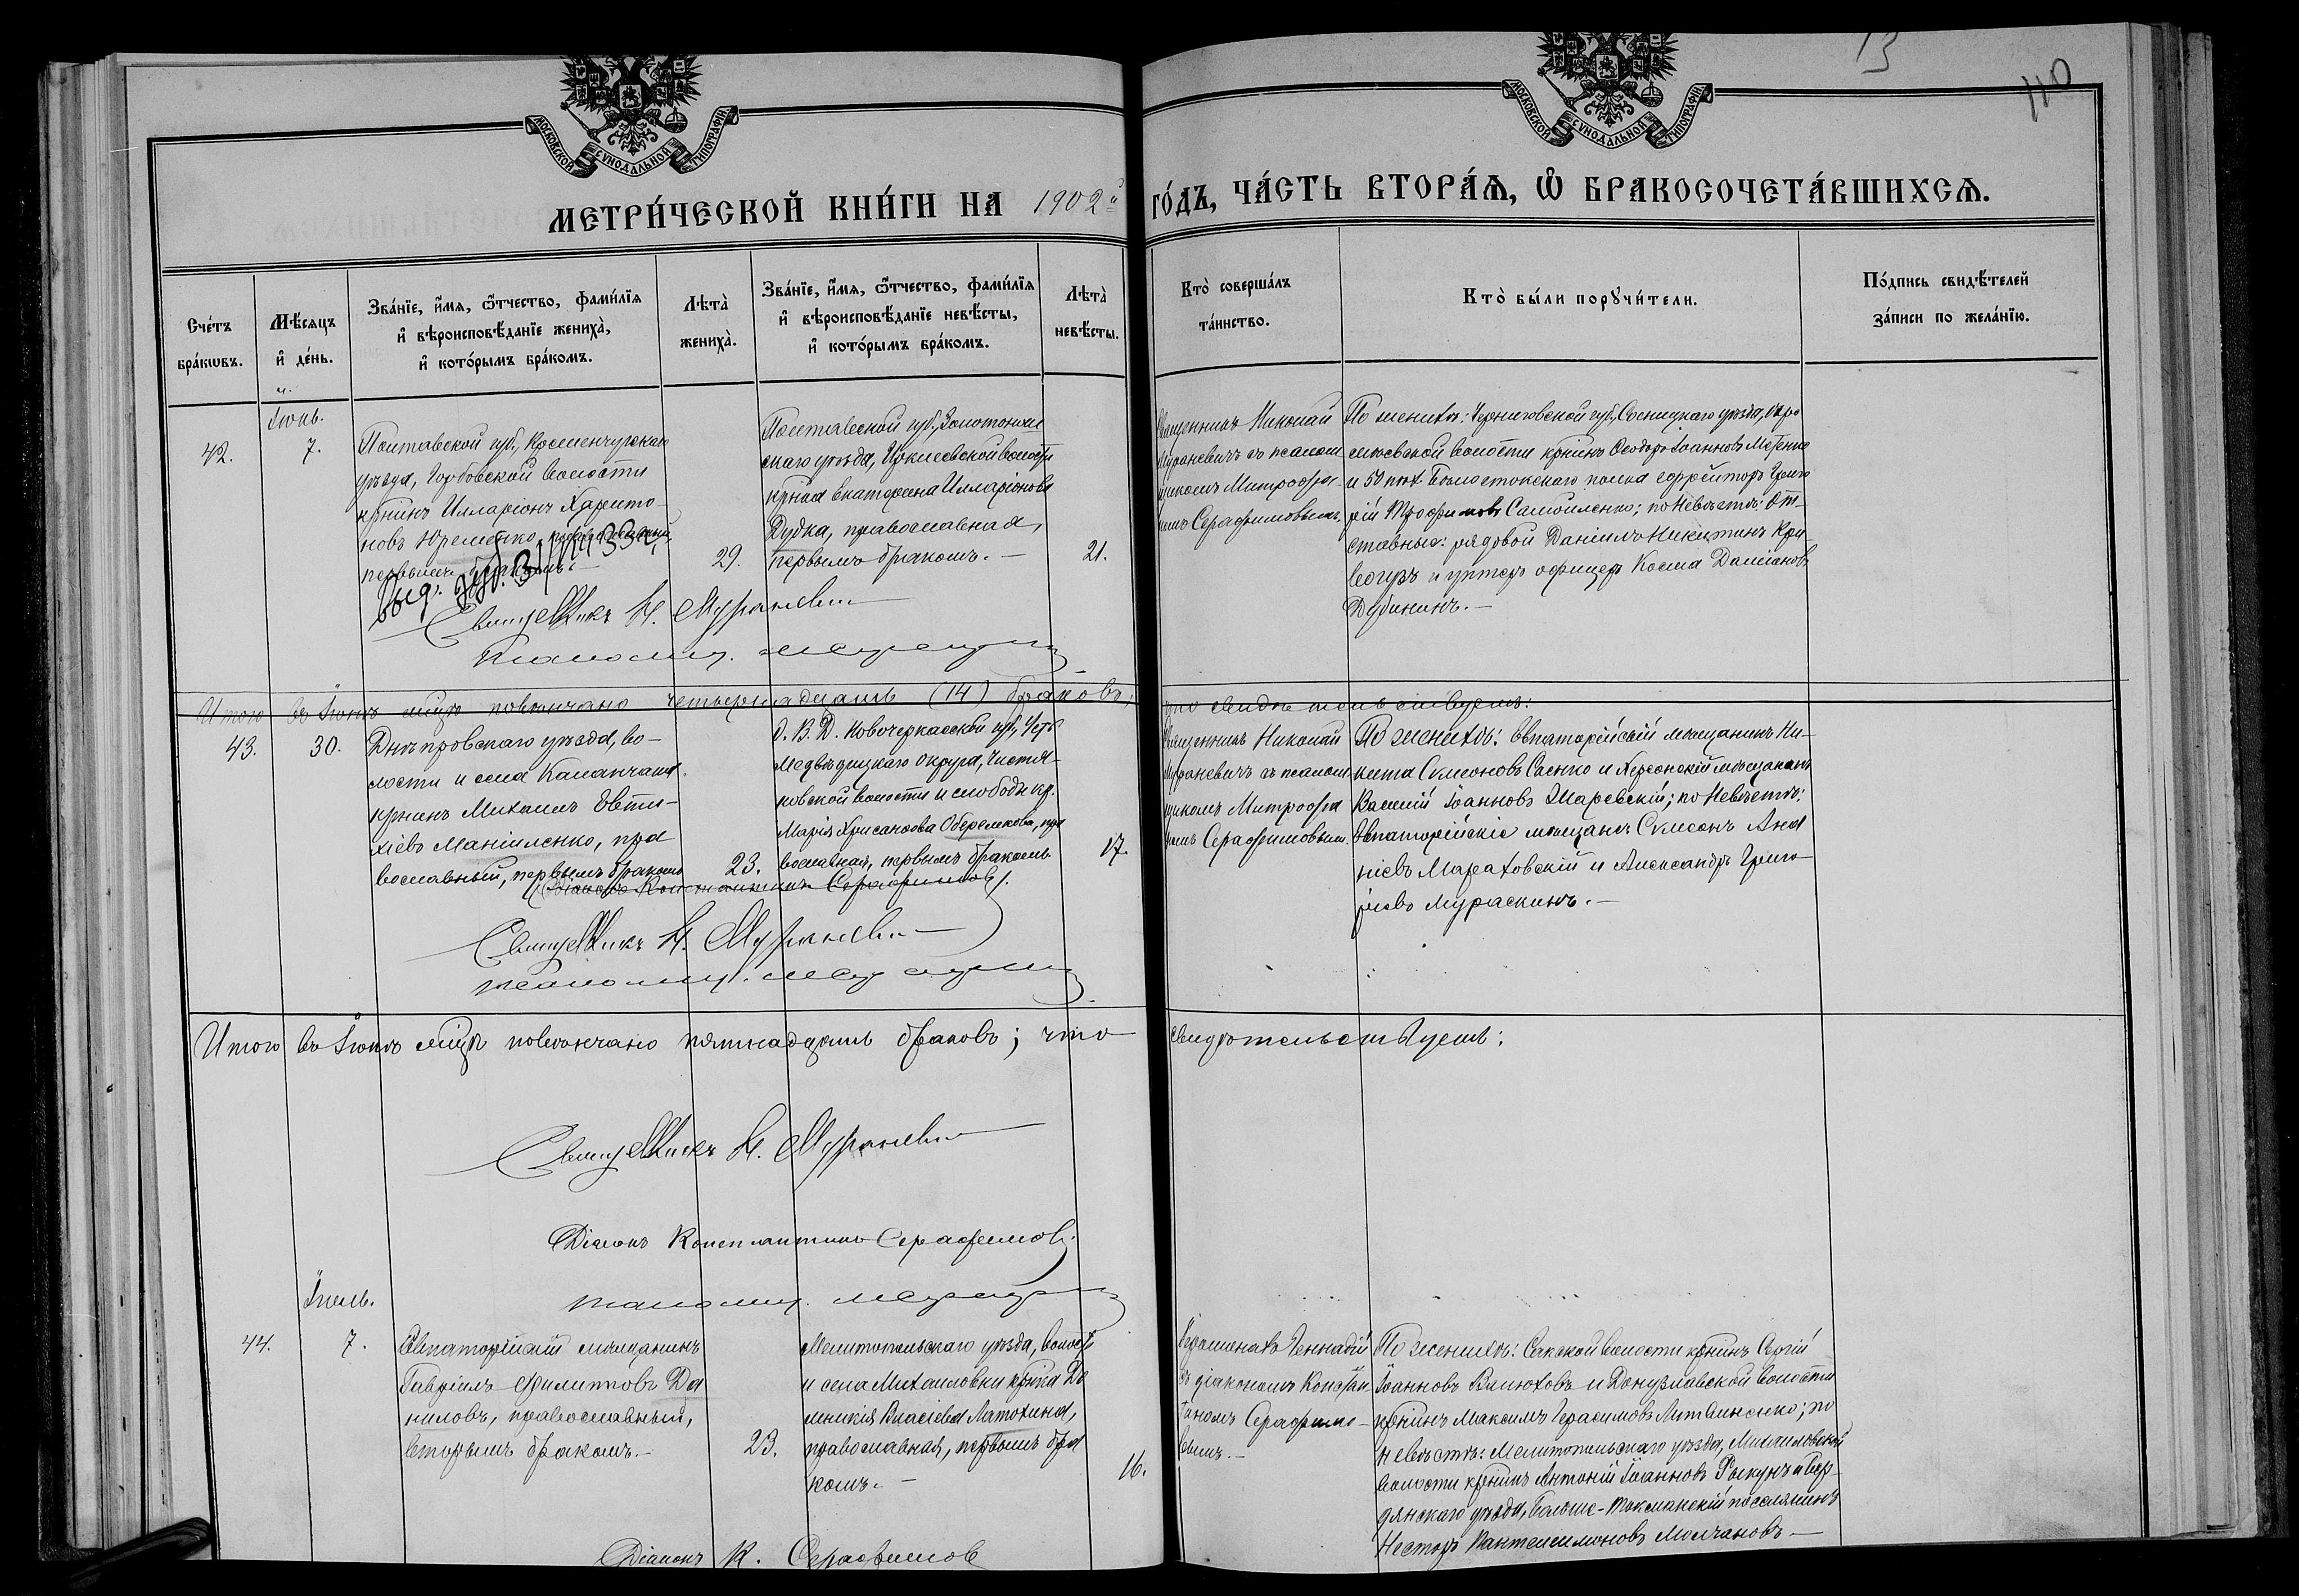 13
110
МОСКОВСКОЙ СѴНОДАЛЬНОЙ ТИПОГРАФІИ
МОСКОВСКОЙ СѴНОДАЛЬНОЙ ТИПОГРАФІИ
МЕТРИ́ЧЕСКОЙ КНИ́ГИ НА 1902й ГО́ДЪ, ЧА́СТЬ ВТОРА́Ѧ, Ѽ БРАКОСОЧЕТА́ВШИХСѦ.
Сче́тъ бра́кѡвъ.
Мѣ́сѧцъ и҆ де́нь.
Зва́нїе, и҆́мѧ, ѻ҆́тчество, фами́лїѧ
и҆ вѣроисповѣ́данїе жениха̀,
и҆ кото́рымъ бра́комъ.
Лѣта̀ жениха̀.
Зва́нїе, и҆́мѧ, ѻ҆́тчество, фами́лїѧ
и҆ вѣроисповѣ́данїе невѣ́сты,
и҆ кото́рымъ бра́комъ.
Лѣта̀ невѣ́сты.
Кто̀ соверша́лъ та́инство.
Кто̀ бы́ли порꙋчи́тели.
По́дпись свидѣ́телей за́писи по жела́нїю.
42.
Іюнь.
7.
Полтавской губ., Кременчугскаго
уѣзда, Горбовской волости
крнинъ Илларіонъ Харито-
новъ Яременко, православный,
первымъ бракомъ.
29.
Полтавской губ., Золотонош
скаго уѣзда, Ирклеевской волости
крнка Екатерина Илларіонова
Дудка, православная,
первымъ бракомъ. —
21.
Священникъ Николай
Мураневичъ съ псалом
щикомъ Митрофа-
номъ Серафимовымъ.
По женихѣ: Черниговской губ., Сосницкаго уѣзда,
волости крнинъ Ѳеодоръ Іоанновъ
и 50 пѣх. Бѣлостокскаго полка ефрейторъ Григо
рій Трофимовъ Самойленко; по невѣстѣ: от-
ставные: рядовой Даніилъ Никитинъ Кри
and унтеръ офицеръ Косма Даміановъ
Дубининъ. —
Священникъ Н. Мураневичъ
Итого въ Іюнѣ мѣцѣ повѣнчано четырнадцать (14) браковъ;
что свидѣтельствуемъ:
43.
30.
Днѣпровскаго уѣзда, во-
лости и села Каланчака
крнинъ Михаилъ Евти-
хіевъ Маніиленко, пра
вославный, первымъ бракомъ
23.
О. В. Д. Новочеркасской губ., Усть
Медвѣдицкаго округа, Чистя-
ковской волости и слободы кр.
Марія Хрисанѳова Оберемкова, пра
вославная, первымъ бракомъ.
17.
Священникъ Николай
Мураневичъ съ псалом
щикомъ Митрофа
номъ Серафимовымъ.
По женихѣ: Евпаторійскій мѣщанинъ Ни-
кита Симеоновъ Саенко и Херсонскій мѣщанинъ
Василій Іоанновъ Шаревскій; по невѣстѣ:
Евпаторійскіе мѣщане Симеонъ Ана
ніевъ Мараховскій и Александръ Григо-
рьевъ Мураскинъ. —
Діаконъ Константинъ Серафимовъ.
Священникъ Н. Мураневичъ
Итого въ Іюнѣ мѣцѣ повѣнчано пятнадцать браковъ; что свидѣтельствуемъ:
Священникъ Н. Мураневичъ
Діаконъ Константинъ Серафимовъ.
Іюль.
44.
7.
Евпаторійскій мѣщанинъ
Гавріилъ Филипповъ Да
ниловъ, православный,
вторымъ бракомъ. —
23.
Мелитопольскаго уѣзда, волости
и села Михайловки крнка До
мникія Власіева Латохина,
православная, первымъ бра
комъ. —
16.
Іеромонахъ Геннадій
съ діакономъ Констан
тиномъ Серафимо-
вымъ. —
По женихѣ: Сакской волости крнинъ Сергій
Іоанновъ Вилюховъ и Донузлавской волости
крнинъ Максимъ Герасимовъ Литвиненко; по
невѣстѣ: Мелитопольскаго уѣзда, Михайловской
волости крнинъ Антоній Іоанновъ и Бер-
дянскаго уѣзда, Больше-Токмакскій поселянинъ
Несторъ Пантелеимоновъ Молчановъ. —
Діаконъ К. Серафимовъ